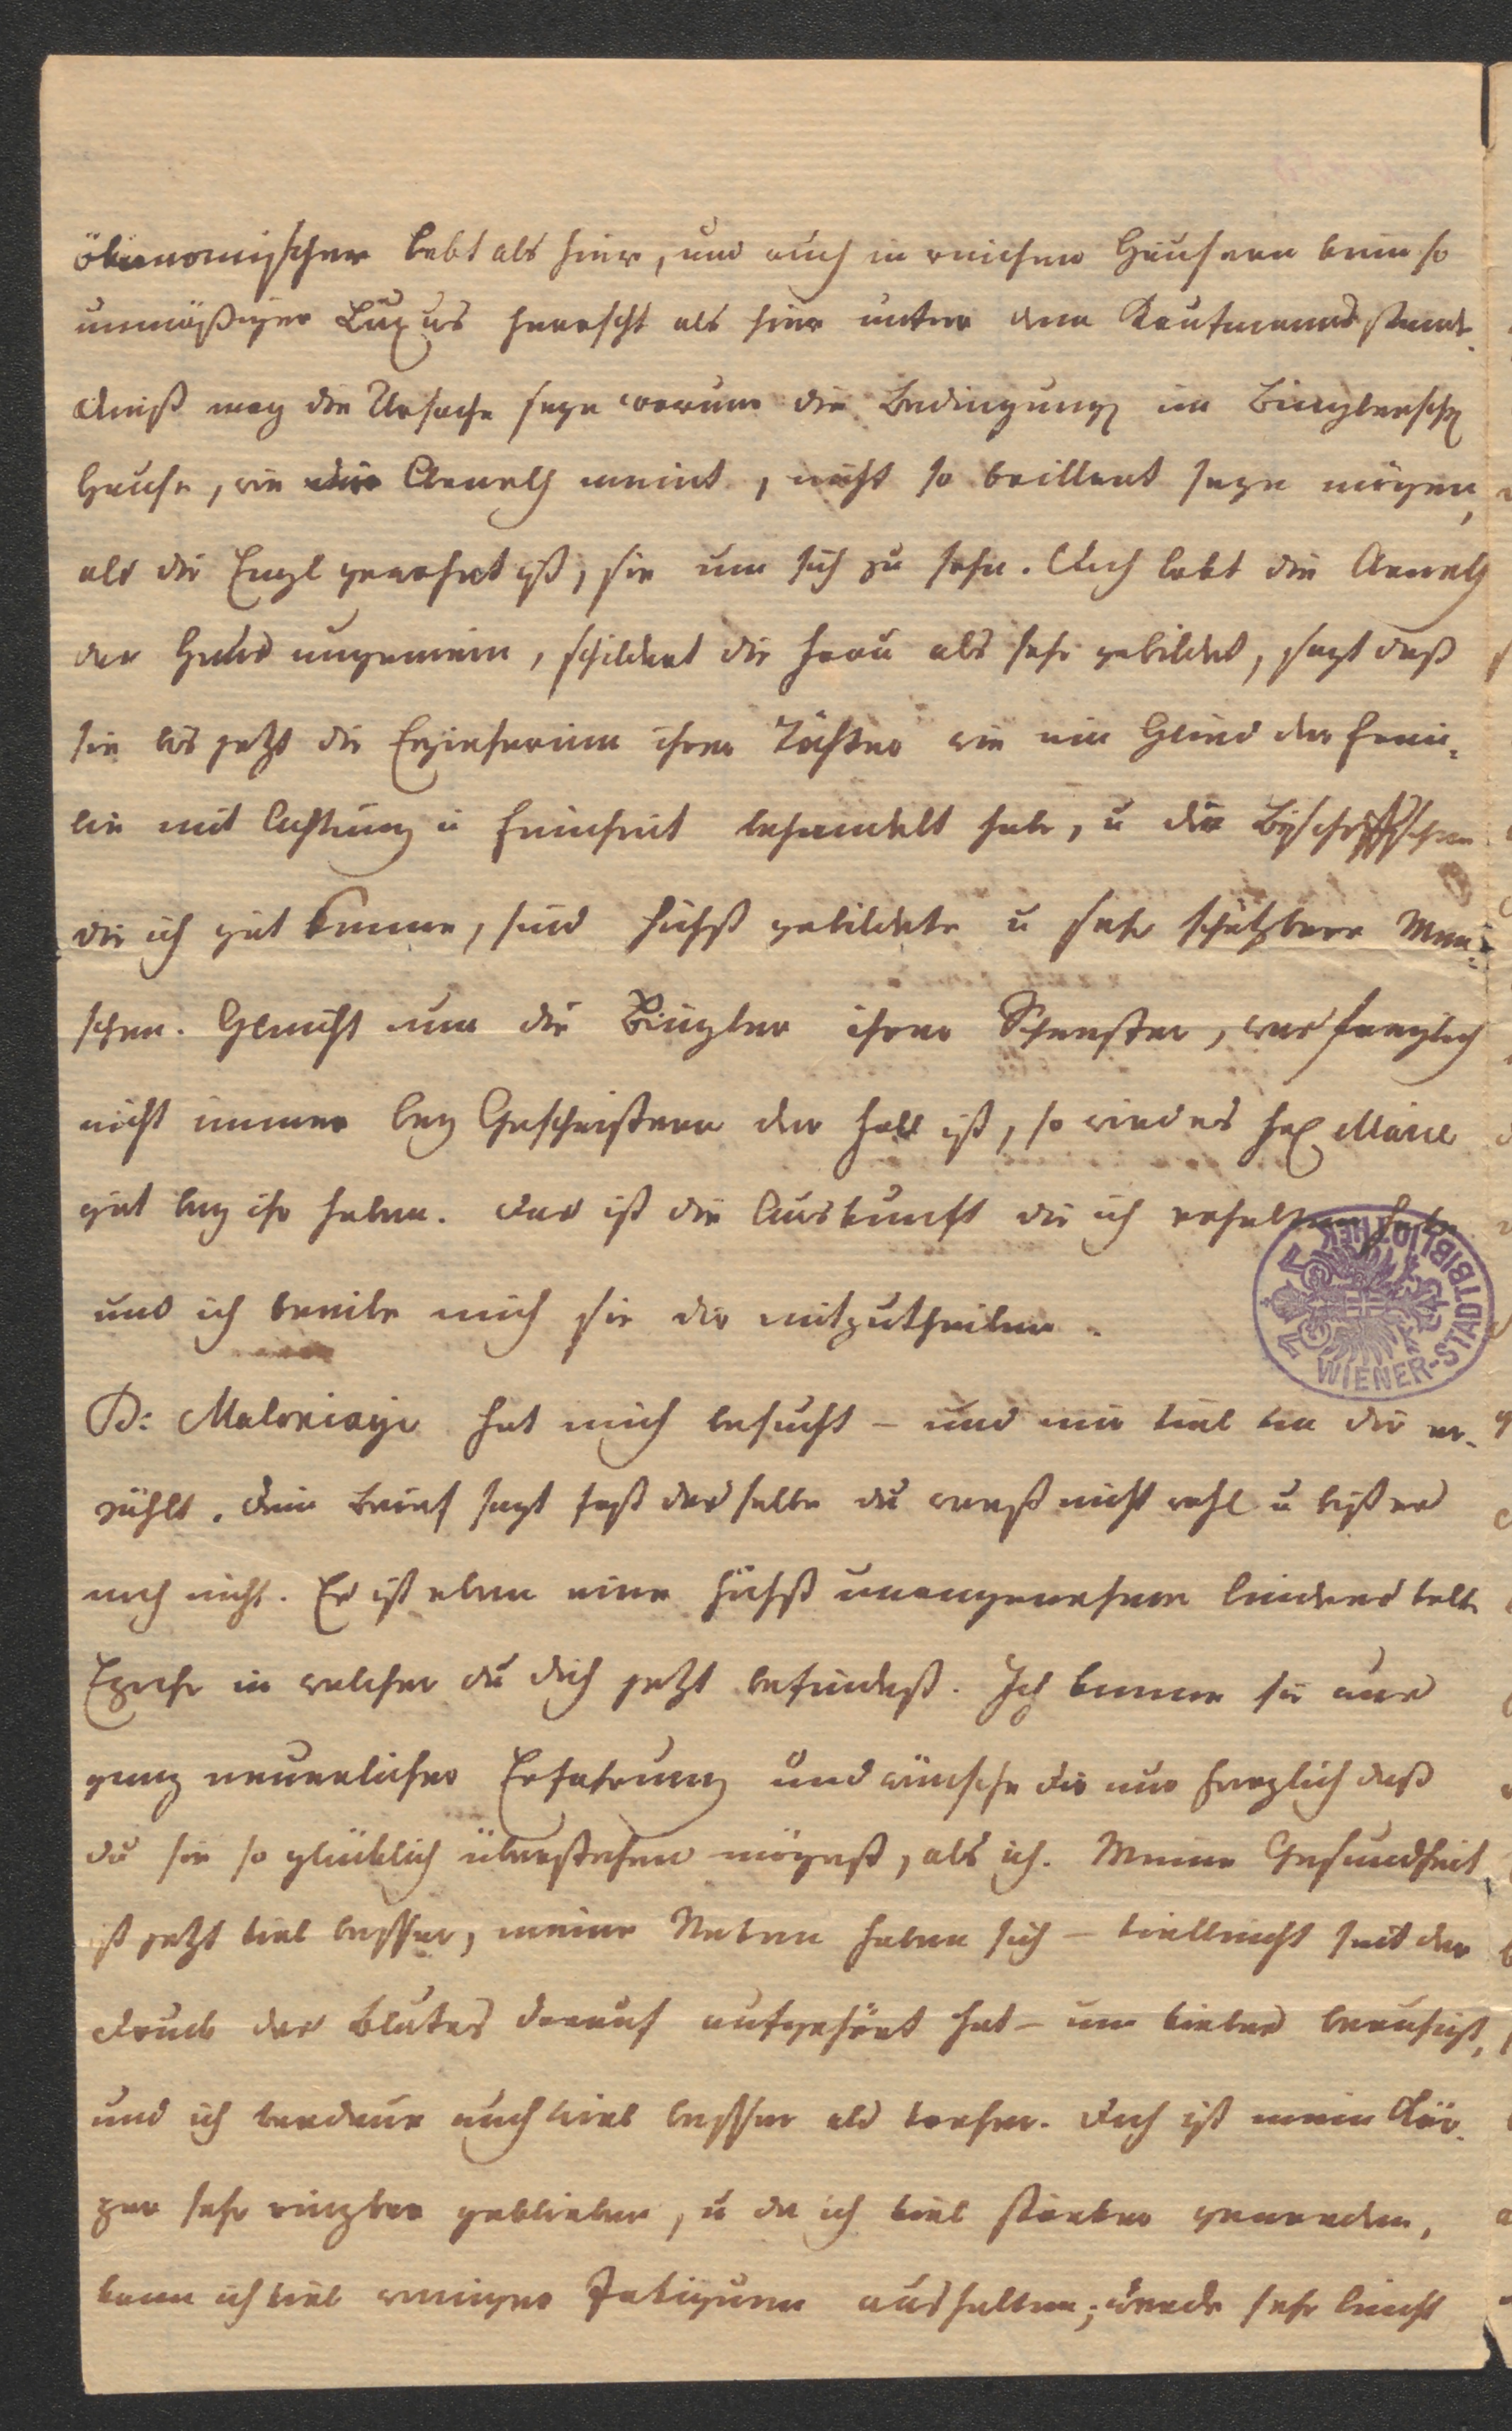 ökonomischer lebt als hier, und auch in reichen Häusern kein so
unmäßiger Luxus herrscht als hier unter dem Kaufmannsstande.
Dieß mag die Ursache seyn warum die Bedingung im
Hause, wie die Arneth meint, nicht so brillant seyn mögen,
als die Engl gewohnt ist, sie um sich zu sehn. Auch lobt die Arneth
das Haus ungemein, schildert die Frau als sehr gebildet, sagt daß
sie bis jetzt die Erzieherinn ihrer Töchter wie ein Glied der Fami-
lie mit Achtung u Feinheit behandelt habe, u die
die ich gut kenne, sind höchst gebildete u sehr schätzbare Men-
schen. Gleicht nun die ihrer Schwester, was freylich
nicht immer bey Geschwistern der Fall ist, so wird es Marie
gut bey ihr haben. Das ist die Auskunft die ich erhalten habe
und ich beeile mich sie dir mitzutheilen.
D: hat mich besucht – und mir viel von dir er-
zählt. Dein Brief sagt fast dasselbe du warst nicht wohl u bist es
noch nicht. Es ist eben eine höchst unangenehme leidensvolle
Epoche in welcher du dich jetzt befindest. Ich kenne sie aus
ganz neuerlicher Erfahrung und wünsche dir nur herzlich daß
du sie so glücklich überstehen mögest, als ich. Meine Gesundheit
ist jetzt viel besser, meine Nerven haben sich – vielleicht seit der
Druck des Blutes darauf aufgehört hat – um vieles beruhigt,
und ich verdaue auch viel besser als vorher. Doch ist mein Kör-
per sehr reizbar geblieben, u da ich viel stärker geworden,
kann ich viel weniger Fatiguen aushalten; werde sehr leicht
WIENER-STADTBIBLIOTHEK